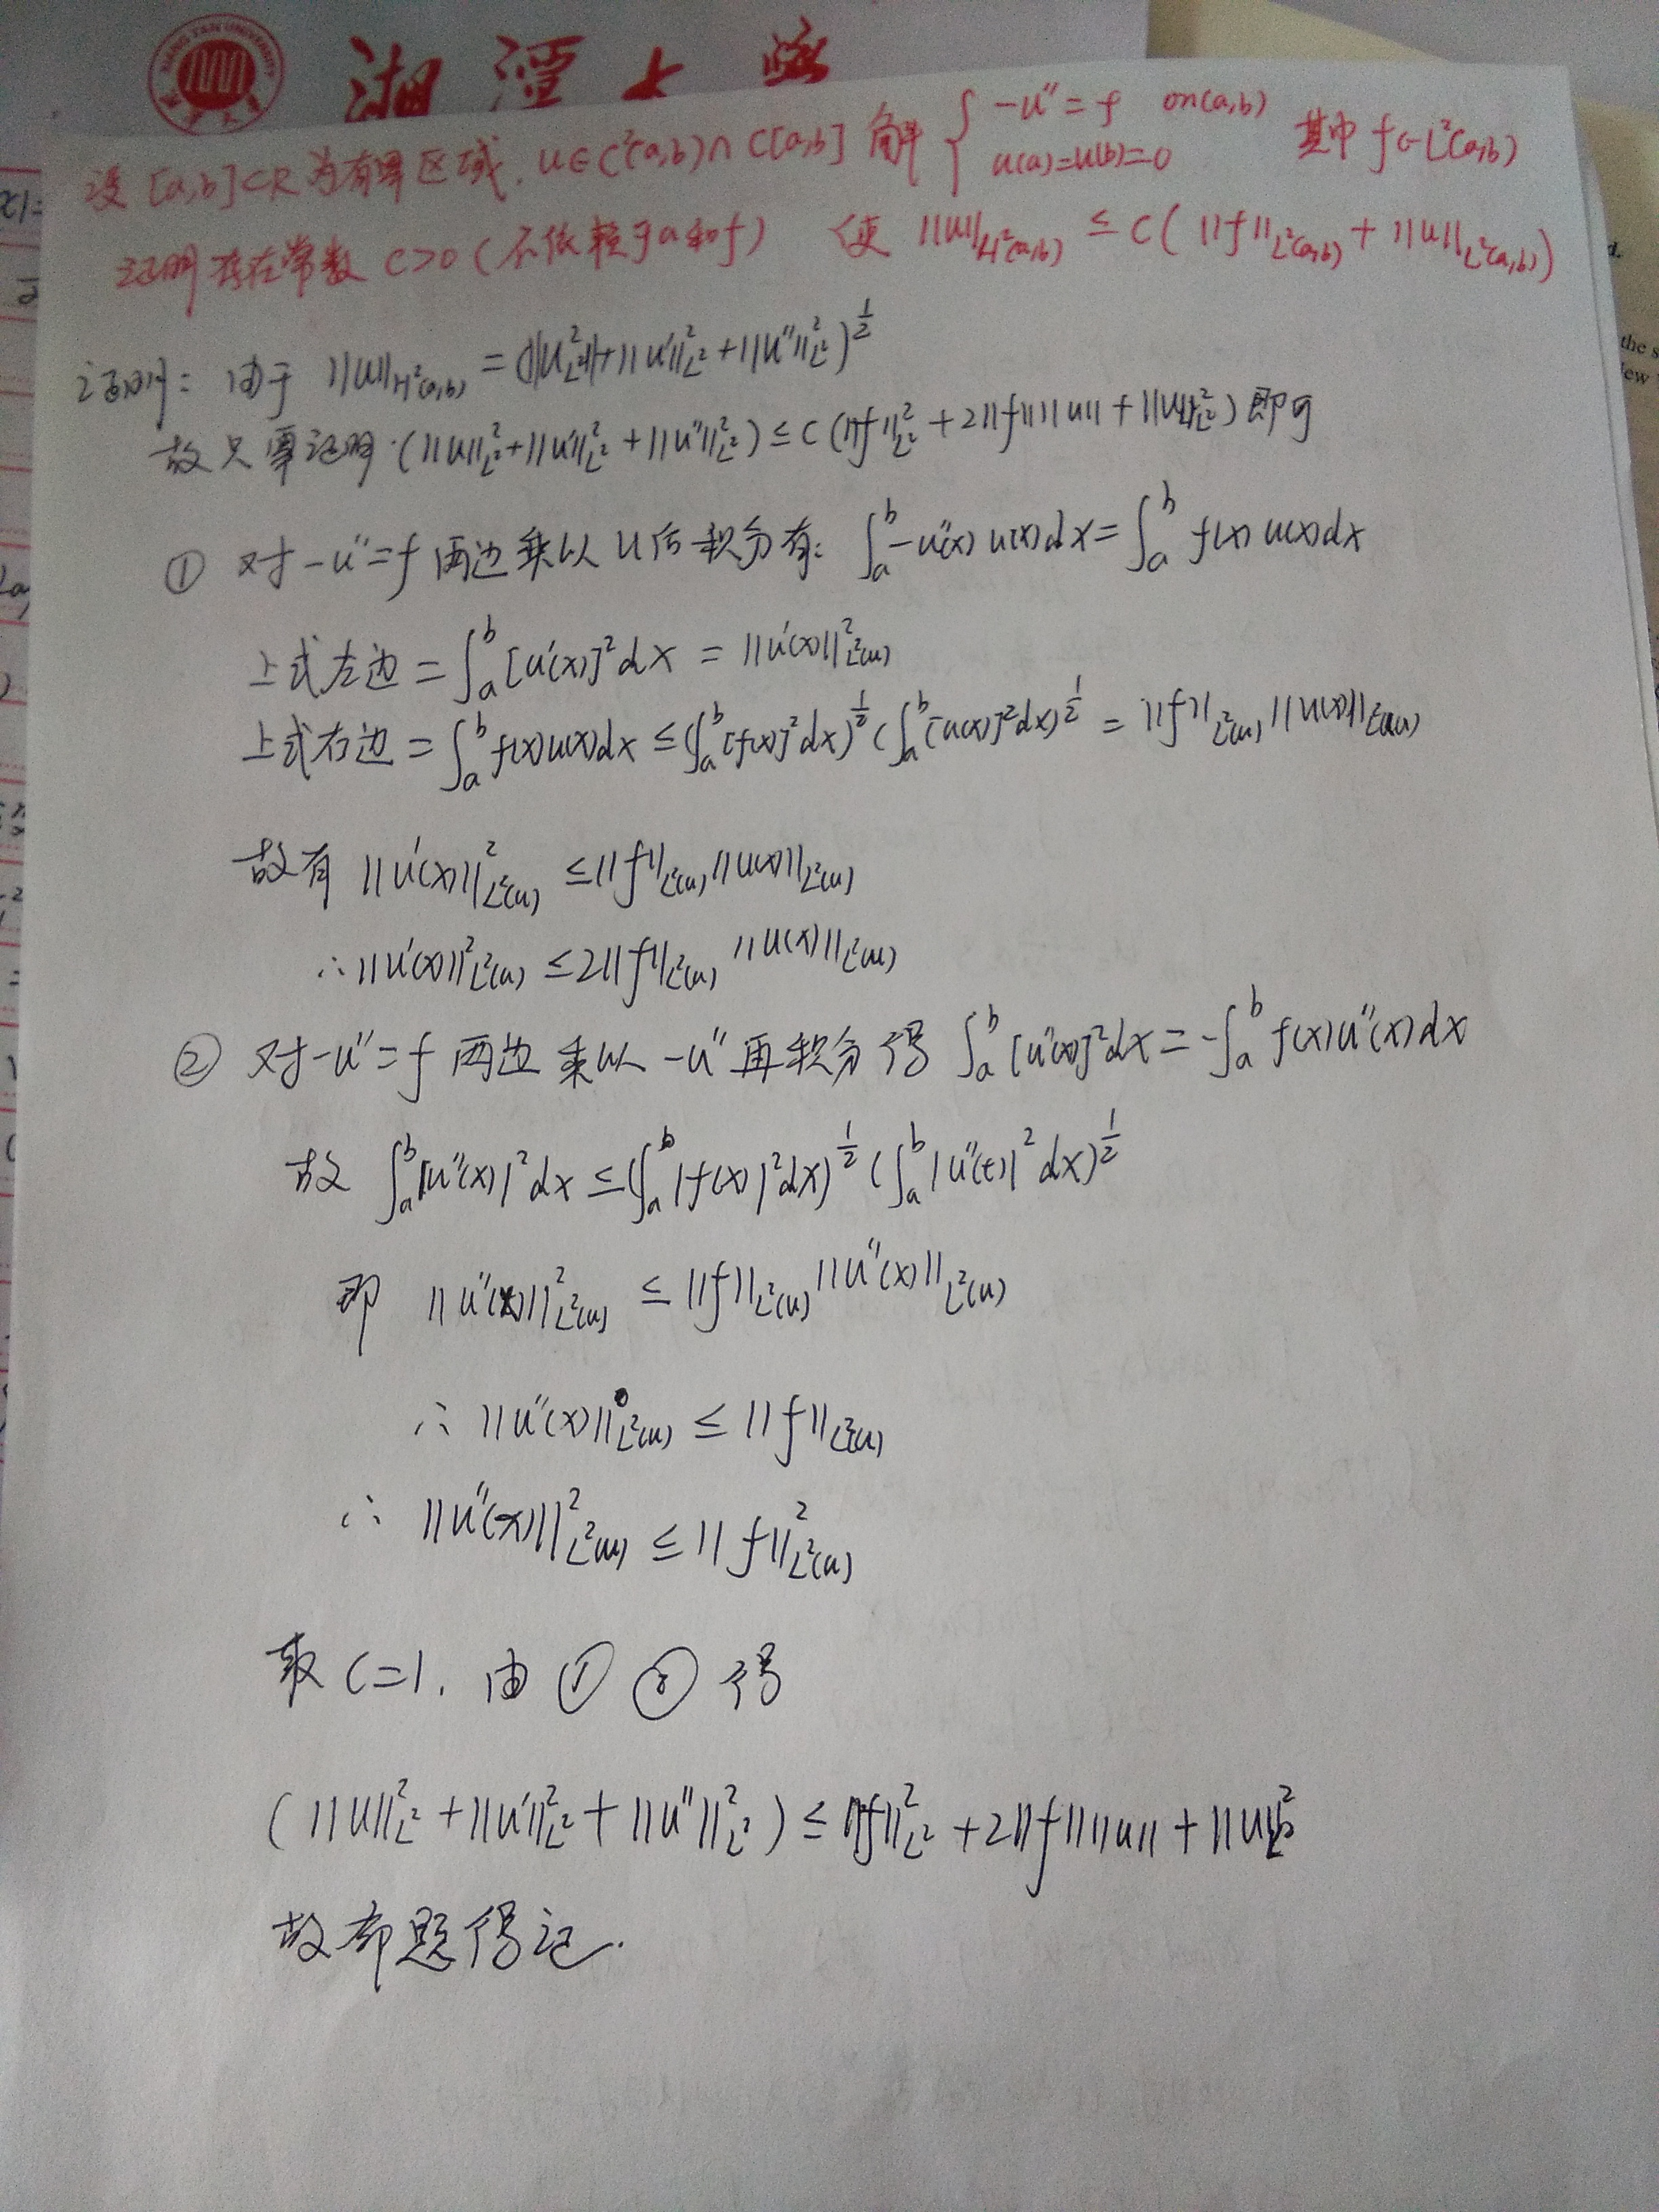 XIANG TAN UNIVERSITY
湘潭大学
设 [a,b]⊂R 为有界区域. u∈C²(a,b)∩C[a,b] 解 { -u″=f on(a,b) 其中 f∈L²(a,b)
u(a)=u(b)=0
证明存在常数 C>0 (不依赖于u和f) 使 ||u||_{H²(a,b)} ≤ C( ||f||_{L²(a,b)} + ||u||_{L²(a,b)} )
证明: 由于 ||u||_{H²(a,b)} = (||u||²_{L²}+||u′||²_{L²}+||u″||²_{L²})^{1/2}
故只需证明 (||u||²_{L²}+||u′||²_{L²}+||u″||²_{L²}) ≤ C (||f||²_{L²}+2||f||||u||+||u||²_{L²}) 即可
① 对 -u″=f 两边乘以 u 后积分有: ∫_a^b -u″(x) u(x)dx = ∫_a^b f(x) u(x)dx
上式左边 = ∫_a^b [u′(x)]²dx = ||u′(x)||²_{L²(u)}
上式右边 = ∫_a^b f(x)u(x)dx ≤ (∫_a^b [f(x)]²dx)^{1/2} (∫_a^b [u(x)]²dx)^{1/2} = ||f||_{L²(u)} ||u(x)||_{L²(u)}
故有 ||u′(x)||²_{L²(u)} ≤ ||f||_{L²(u)} ||u(x)||_{L²(u)}
∴ ||u′(x)||²_{L²(u)} ≤ 2||f||_{L²(u)} ||u(x)||_{L²(u)}
② 对 -u″=f 两边乘以 -u″ 再积分得 ∫_a^b [u″(x)]²dx = -∫_a^b f(x)u″(x)dx
故 ∫_a^b |u″(x)|²dx ≤ (∫_a^b |f(x)|²dx)^{1/2} (∫_a^b |u″(t)|²dx)^{1/2}
即 ||u″(x)||²_{L²(u)} ≤ ||f||_{L²(u)} ||u″(x)||_{L²(u)}
∴ ||u″(x)||_{L²(u)} ≤ ||f||_{L²(u)}
∴ ||u″(x)||²_{L²(u)} ≤ ||f||²_{L²(u)}
取 C=1. 由 ① ② 得
(||u||²_{L²}+||u′||²_{L²}+||u″||²_{L²}) ≤ ||f||²_{L²}+2||f||||u||+||u||²_{L²}
故命题得证.